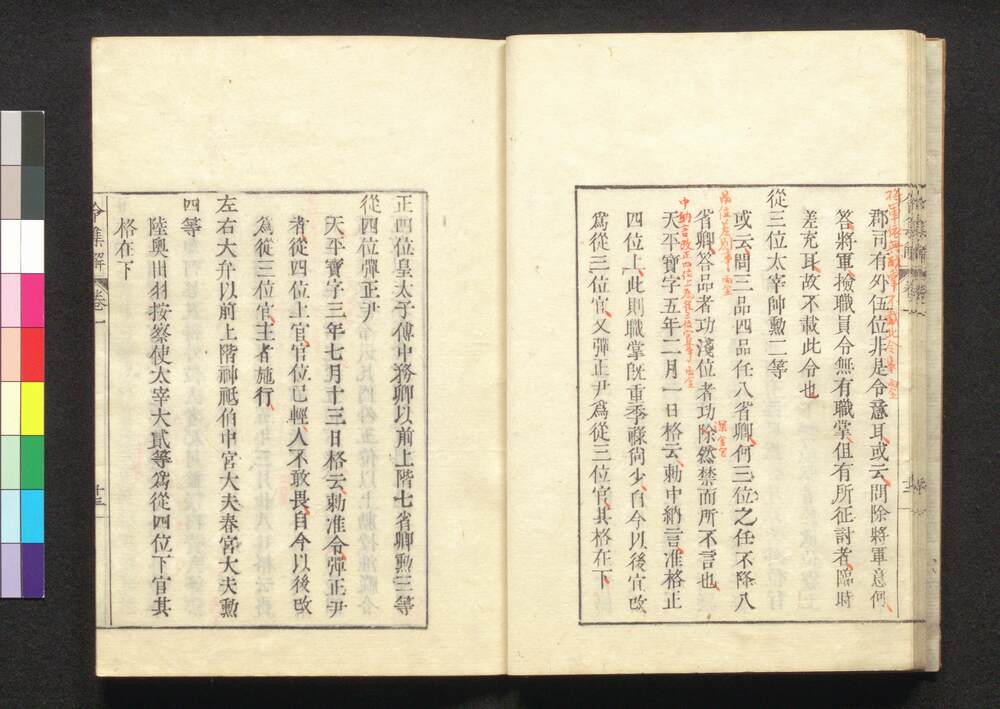 郡司有外伍位非是令意耳或云問除將軍意何
答將軍撿職員令無有職掌伹有所征討者臨時
差充耳故不載此令也
從三位太宰帥勳二等
或云問三品四品任八省卿何三位之任不降八
省卿答品者功淺位者功除然禁而所不言也
天平寶字五年二月一日格云勅中納言准格正
四位上此則職掌旣重季祿尙少自今以後官改
爲從三位官又彈正尹爲從三位官其格在下
正四位皇太子傅中務卿以前上階七省卿勳三等
從四位彈正尹
天平寶字三年七月十三日格云勅准令彈正尹
者從四位上官官位已輕人不敢畏自今以後改
爲從三位官主者施行
左右大弁以前上階神祗伯中宮大夫春宮大夫勳
四等
陸奧出羽按察使太宰大貳等爲從四位下官其
格在下
令集解 卷一 十三